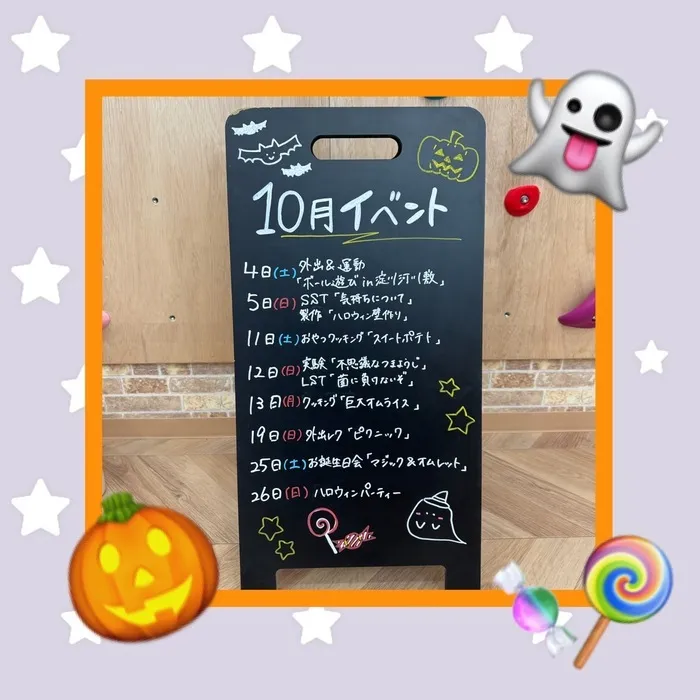 10月イベント
4日(土) 外出&運動
「ボール遊び in 淀川河川敷」
5日(日) SST「気持ちについて」
製作「ハロウィン壁作り」
11日(土) おやつクッキング「スイートポテト」
12日(日) 実験「不思議なつまようじ」
LST「菌に負けないぞ」
13日(月) クッキング「巨大オムライス」
19日(日) 外出レク「ピクニック」
25日(土) お誕生日会「マジック&オムレット」
26日(日) ハロウィンパーティー